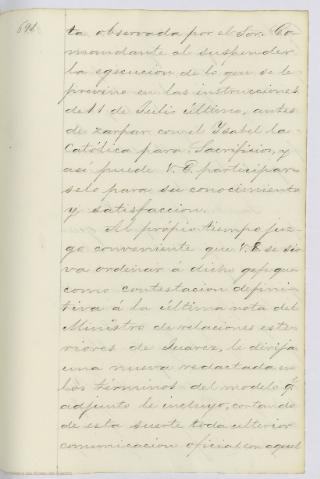 694
ta observada por el Sor. Co-
mandante al suspender
la egecucion de lo que se le
previno en las instrucciones
de 11 de Julio último, antes
de zarpar con el Ysabel la
Católica para Sacrificios, y
así puede V. E. participar-
selo para su conocimiento
y satisfaccion.
Al propio tiempo juz-
go conveniente que V. E. se sir-
va ordenar á dicho gefe que
como contestacion defini-
tiva á la última nota del
Ministro de relaciones este-
riores de Juarez, le dirija
una nueva redactada en
los términos del modelo q.
adjunto le incluyo, cortando
de esta suerte toda ulterior
comunicacion oficial con aquel